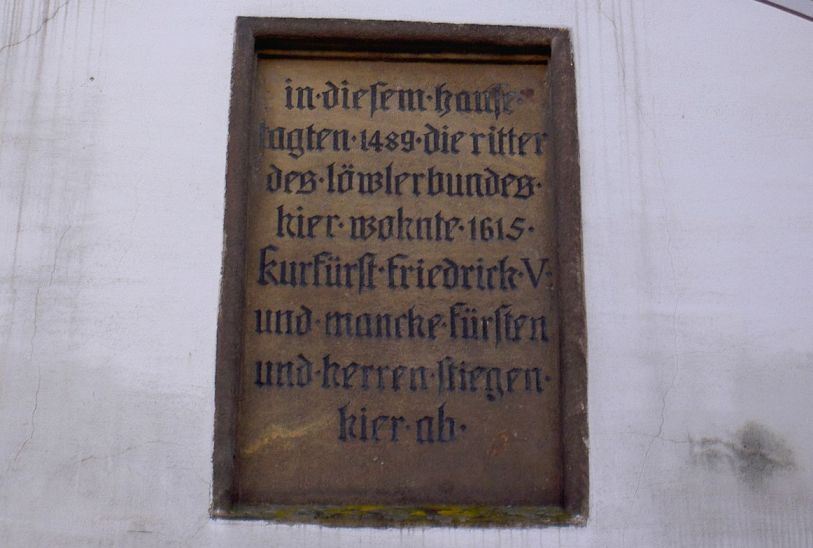 in·diesem·hause·
tagten·1489·die ritter
des·löwlerbundes·
hier·wohnte·1615·
kurfürst·friedrick·V·
und·manche·fürsten
und·herren·stiegen·
hier·ab·